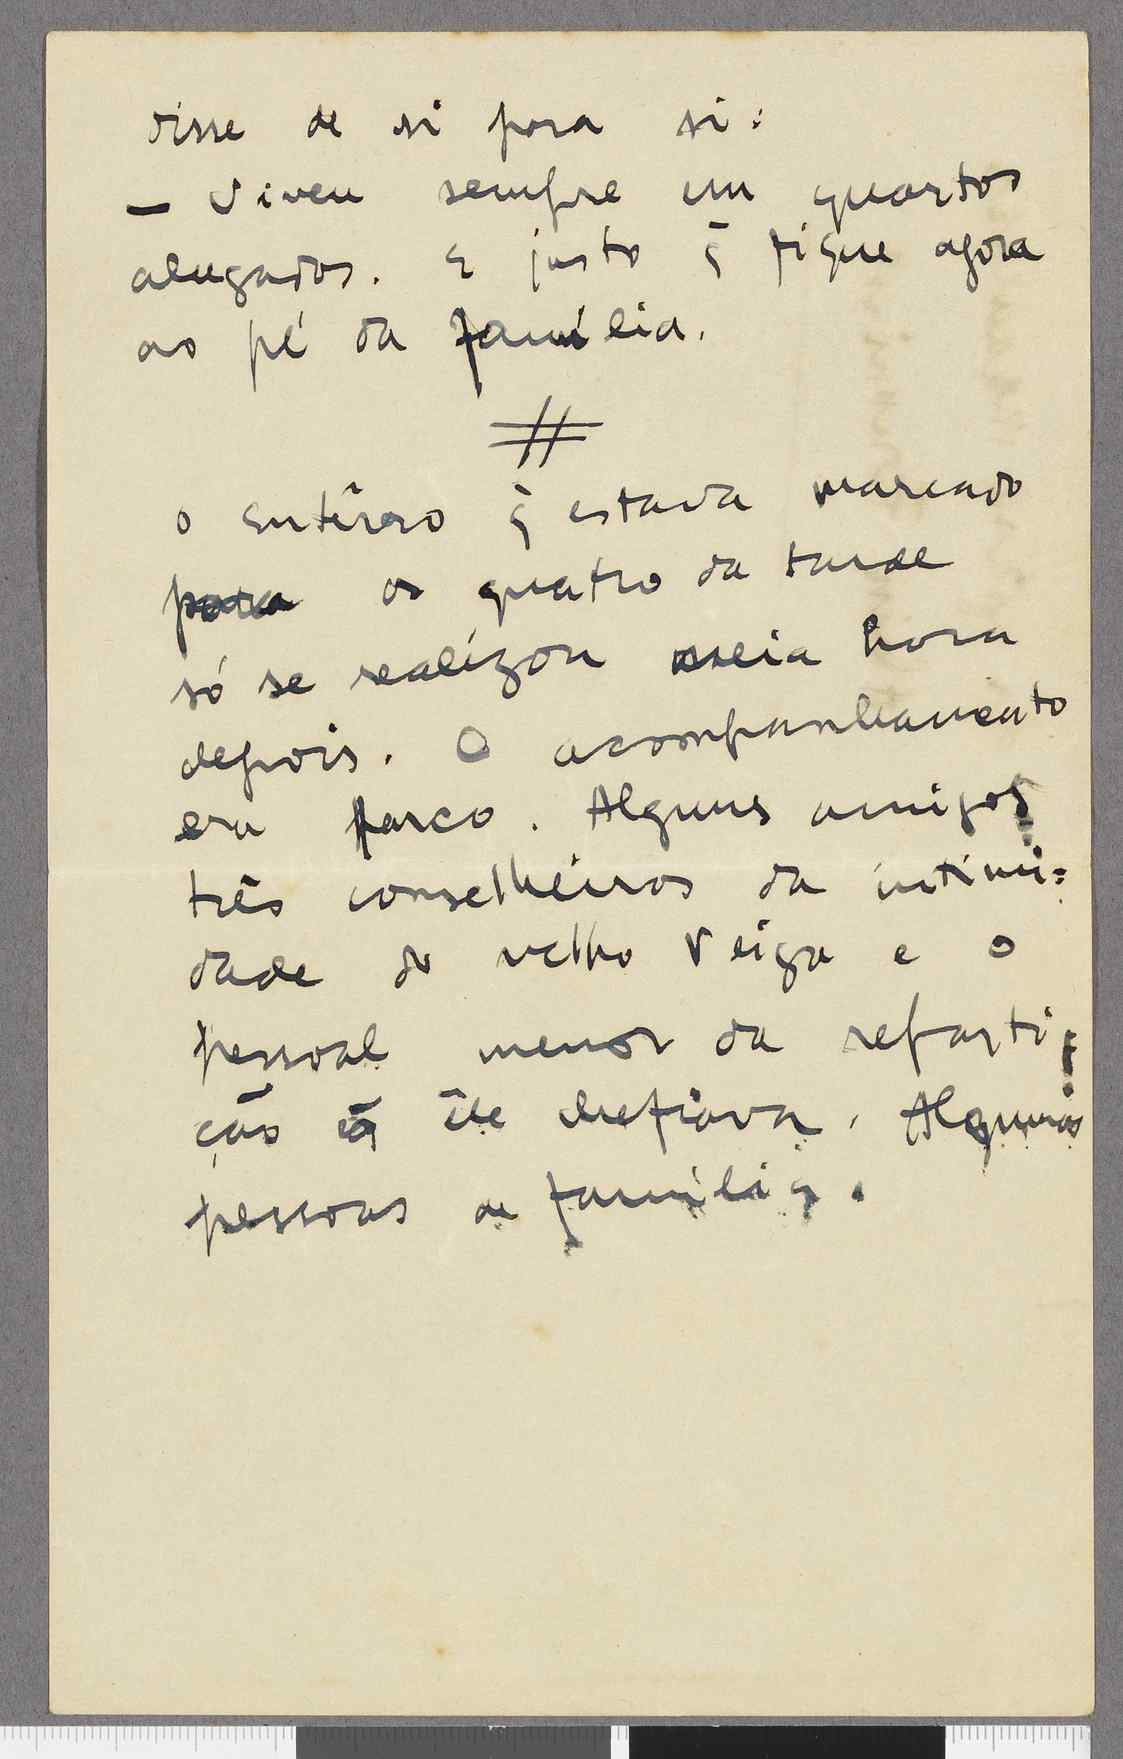 disse de si para si:
— Viveu sempre em quartos
alugados. E justo q̃ fique agora
ao pé da família.
#
O entêrro q̃ estava marcado
para as quatro da tarde
só se realizou meia hora
depois. O acompanhamento
era parco. Alguns amigos,
três conselheiros da intimi=
dade do velho Veiga e o
pessoal menor da reparti=
ção q̃ êle chefiava. Algumas
pessoas de família.